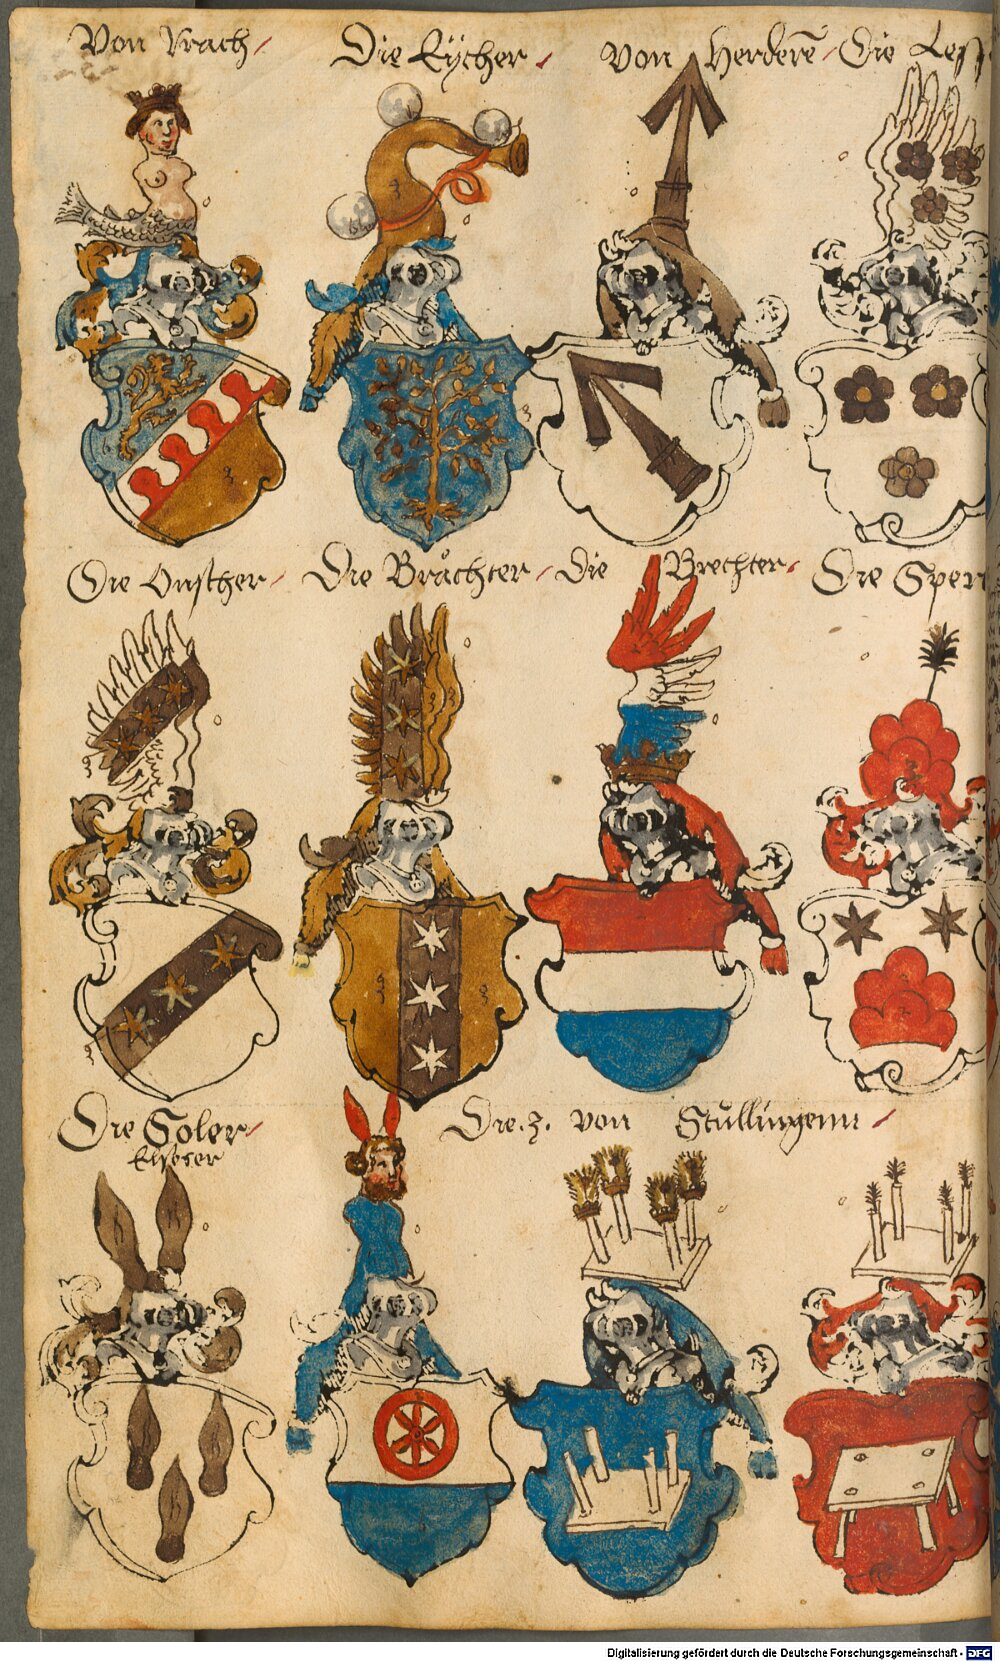 Von Vrach
Die Eÿcher
von Herderē
Die Less
Die Onscher
Die Brächter
Die Brechter
Die Sper
Die Soler
Die .z. von Stüllingenn
Digitalisierung gefördert durch die Deutsche Forschungsgemeinschaft - DFG